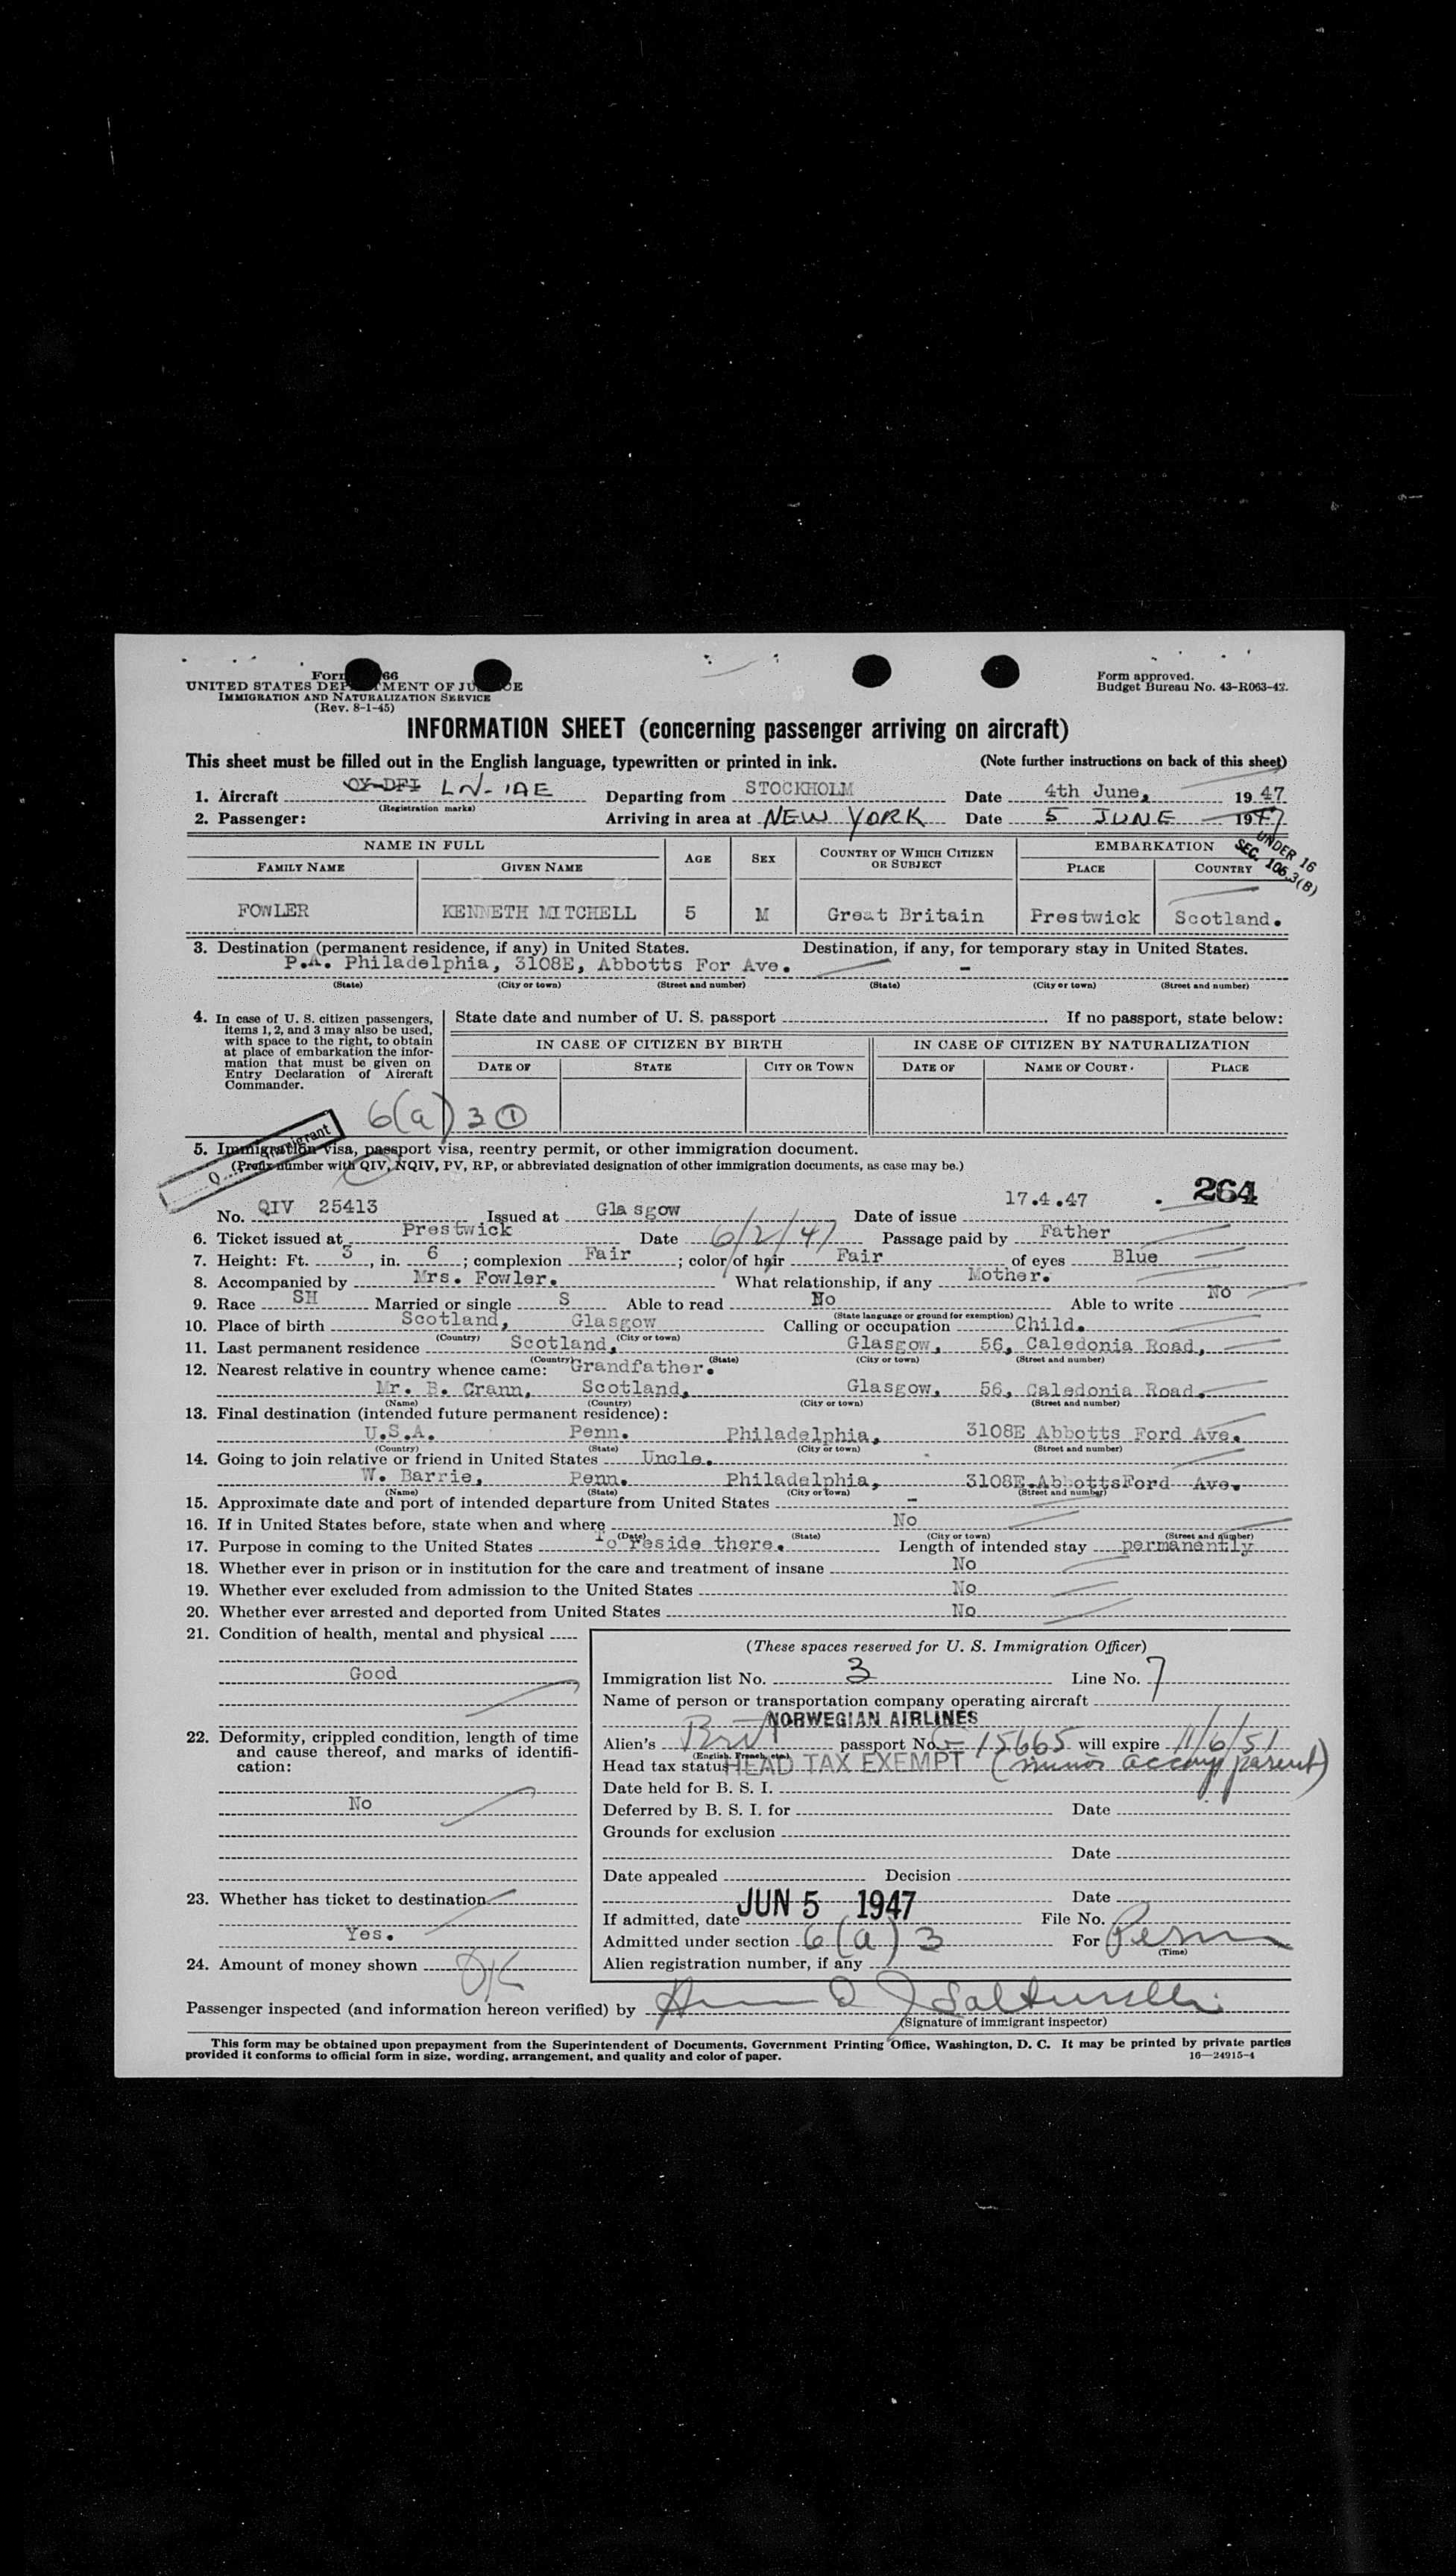 Form 66
UNITED STATES DEPARTMENT OF JUSTICE
IMMIGRATION AND NATURALIZATION SERVICE
(Rev. 8-1-45)
Form approved.
Budget Bureau No. 43-R063-42.
INFORMATION SHEET (concerning passenger arriving on aircraft)
This sheet must be filled out in the English language, typewritten or printed in ink. (Note further instructions on back of this sheet)
1. Aircraft OY-DFI LN-IAE Departing from STOCKHOLM Date 4th June, 1947
(Registration marks)
2. Passenger: Arriving in area at NEW YORK Date 5 JUNE 1947
UNDER 16
SEC. 106.3(B)
NAME IN FULL AGE SEX COUNTRY OF WHICH CITIZEN OR SUBJECT EMBARKATION
FAMILY NAME GIVEN NAME PLACE COUNTRY
FOWLER KENNETH MITCHELL 5 M Great Britain Prestwick Scotland.
3. Destination (permanent residence, if any) in United States. Destination, if any, for temporary stay in United States.
P.A. Philadelphia, 3108E, Abbotts For Ave. -
(State) (City or town) (Street and number) (State) (City or town) (Street and number)
4. In case of U. S. citizen passengers, items 1, 2, and 3 may also be used, with space to the right, to obtain at place of embarkation the information that must be given on Entry Declaration of Aircraft Commander.
State date and number of U. S. passport If no passport, state below:
IN CASE OF CITIZEN BY BIRTH IN CASE OF CITIZEN BY NATURALIZATION
DATE OF STATE CITY OR TOWN DATE OF NAME OF COURT PLACE
6(a)3 1
5. Immigration visa, passport visa, reentry permit, or other immigration document.
(Prefix number with QIV, NQIV, PV, RP, or abbreviated designation of other immigration documents, as case may be.)
264
No. QIV 25413 Issued at Glasgow Date of issue 17.4.47
6. Ticket issued at Prestwick Date 6/2/47 Passage paid by Father
7. Height: Ft. 3, in. 6; complexion Fair; color of hair Fair of eyes Blue
8. Accompanied by Mrs. Fowler. What relationship, if any Mother.
9. Race SH Married or single S Able to read No Able to write No
(State language or ground for exemption)
10. Place of birth Scotland, Glasgow Calling or occupation Child.
(Country) (City or town)
11. Last permanent residence Scotland, Glasgow, 56, Caledonia Road,
(Country) (State) (City or town) (Street and number)
12. Nearest relative in country whence came: Grandfather.
Mr. B. Crann, Scotland, Glasgow, 56, Caledonia Road.
(Name) (Country) (City or town) (Street and number)
13. Final destination (intended future permanent residence):
U.S.A. Penn. Philadelphia, 3108E Abbotts Ford Ave.
(Country) (State) (City or town) (Street and number)
14. Going to join relative or friend in United States Uncle.
W. Barrie, Penn. Philadelphia, 3108E.AbbottsFord Ave.
(Name) (State) (City or town) (Street and number)
15. Approximate date and port of intended departure from United States -
16. If in United States before, state when and where No
(Date) (State) (City or town) (Street and number)
17. Purpose in coming to the United States To reside there. Length of intended stay permanently
18. Whether ever in prison or in institution for the care and treatment of insane No
19. Whether ever excluded from admission to the United States No
20. Whether ever arrested and deported from United States No
21. Condition of health, mental and physical
Good
22. Deformity, crippled condition, length of time and cause thereof, and marks of identification:
No
23. Whether has ticket to destination
Yes.
24. Amount of money shown OK
(These spaces reserved for U. S. Immigration Officer)
Immigration list No. 3 Line No. 7
Name of person or transportation company operating aircraft
NORWEGIAN AIRLINES
Alien's Brit passport No. 15665 will expire 11/6/51
(English, French, etc.)
Head tax status HEAD TAX EXEMPT (minor accomp parent)
Date held for B. S. I.
Deferred by B. S. I. for Date
Grounds for exclusion
Date
Date appealed Decision
Date
If admitted, date JUN 5 1947 File No.
Admitted under section 6(a)3 For Perm
(Time)
Alien registration number, if any
Passenger inspected (and information hereon verified) by
(Signature of immigrant inspector)
This form may be obtained upon prepayment from the Superintendent of Documents, Government Printing Office, Washington, D. C. It may be printed by private parties
provided it conforms to official form in size, wording, arrangement, and quality and color of paper. 16—24915-4